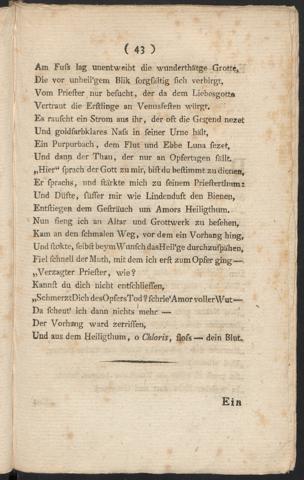 ( 43 )
Am Fuſs lag unentweiht die wunderthätge Grotte,
Die vor unheil'gem Blik ſorgfältig ſich verbirgt,
Vom Prieſter nur beſucht, der da dem Liebesgotta
Vertraut die Erſtlinge an Venusfeſten würgt.
Es rauſcht ein Strom aus ihr, der oft die Gegend nezet
Und goldfarbklares Naſs in ſeiner Urne hält,
Ein Purpurbach, dem Flut und Ebbe Luna ſezet,
Und dann der Thau, der nur an Opfertagen fällt.
„Hier“ ſprach der Gott zu mir, biſt du beſtimmt zu dienen,
Er ſprachs, und ſtärkte mich zu ſeinem Prieſterthum:
Und Düfte, ſüſſer mir wie Lindenduft den Bienen,
Entſtiegen dem Geſträuch um Amors Heiligthum.
Nun fieng ich an Altar und Grottwerk zu beſehen,
Kam an den ſchmalen Weg, vor dem ein Vorhang hing,
Und ſtokte, ſelbſt beym Wunſch das Heil'ge durchzuſpähen,
Fiel ſchnell der Muth, mit dem ich erſt zum Opfer ging—
„Verzagter Prieſter, wie?
Kannſt du dich nicht entſchlieſſen,
„Schmerzt Dich des Opfers Tod? ſchrie' Amor voller Wut—
Da ſcheut' ich dann nichts mehr —
Der Vorhang ward zerriſſen,
Und aus dem Heiligthum, o Chloris, floſs — dein Blut.
Ein